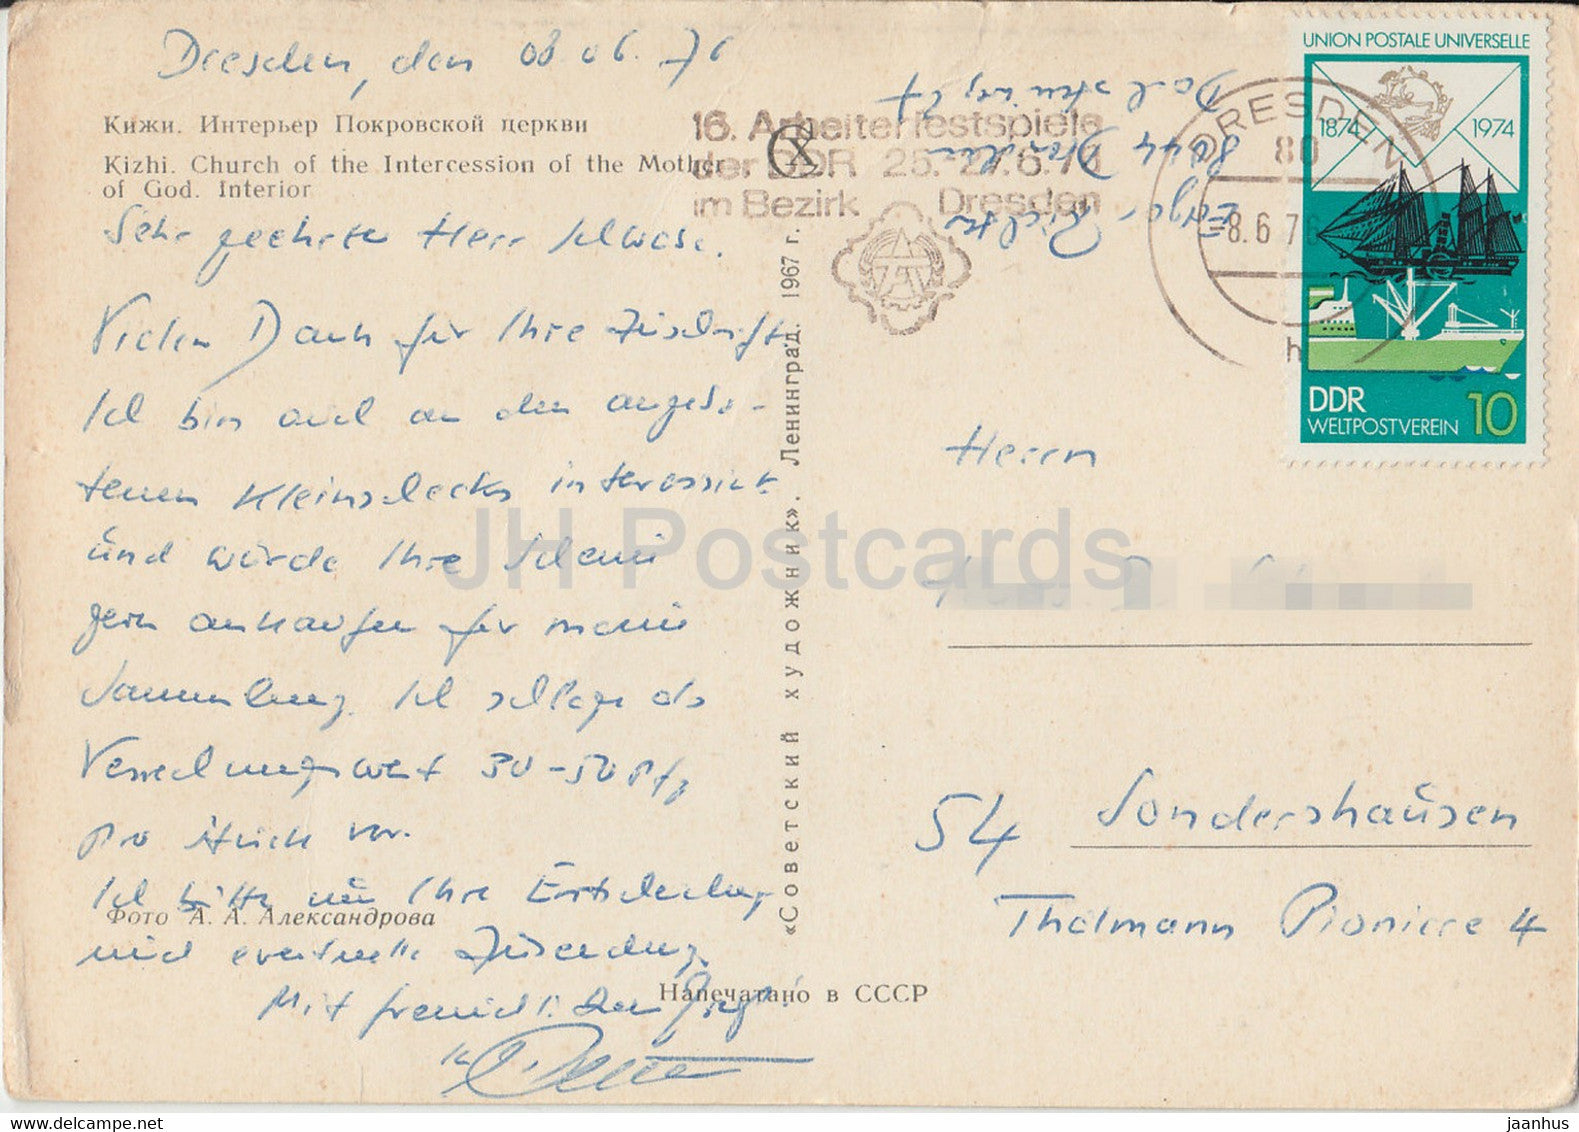 Dresden, den 08.06.76
Кижи. Интерьер Покровской церкви
Kizhi. Church of the Intercession of the Mother
of God. Interior
Sehr geehrter Herr
Vielen Dank für Ihre Zuschrift.
Ich bin auch an den angebo-
tenen Kleinschecks interessiert
und würde Ihre Schecks
gern ankaufen für meine
Sammlung. Ich schlage als
Verrechnungswert 30-50 Pfg
pro Stück vor.
Ich bitte um Ihre Entscheidung
Фото А. А. Александрова
und eventuelle Zusendung.
Mit freundlichem Gruß!
Напечатано в СССР
«Советский художник». Ленинград. 1967 г.
16. Arbeiterfestspiele
der DDR 25.-27.6.76
im Bezirk Dresden
Richter
8044 Dresden
DRESDEN
80
-8.6.76
h
UNION POSTALE UNIVERSELLE
1874 1974
DDR
WELTPOSTVEREIN 10
Herrn
54 Sondershausen
Thälmann Pioniere 4
JH Postcards
jaanhus